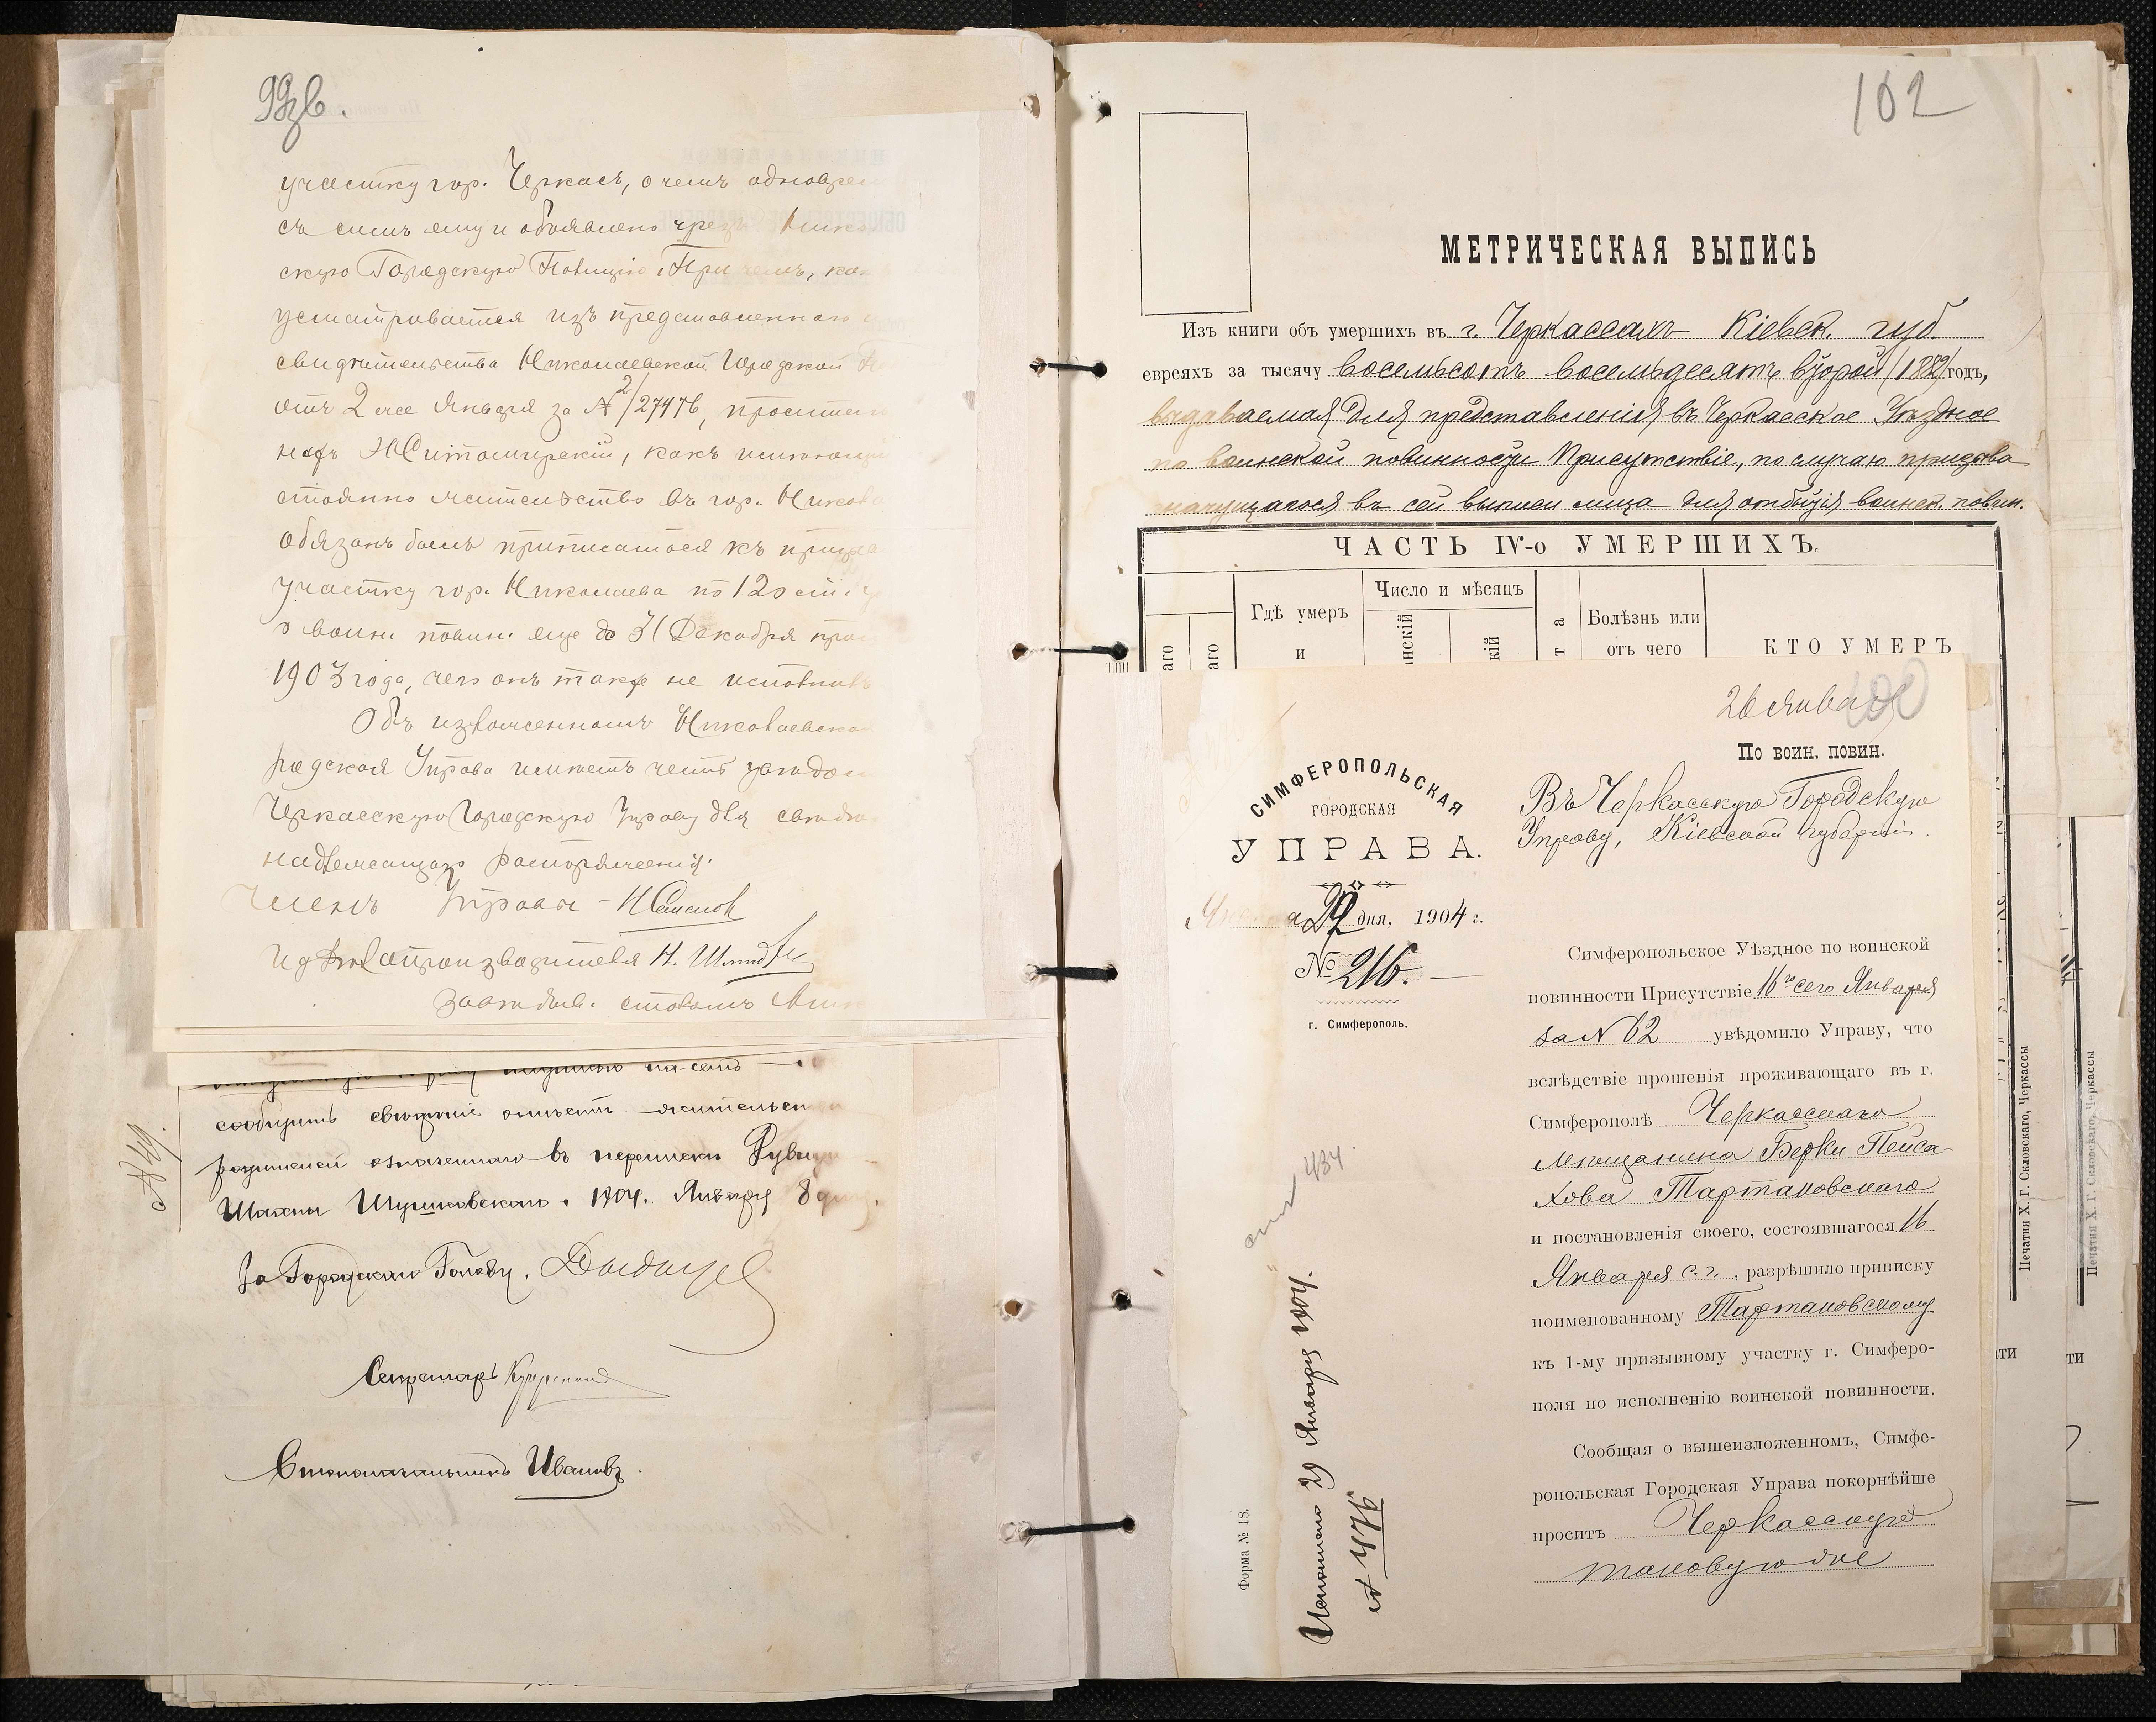 99 об.
участку гор. Черкасъ, о чемъ одновре
съ симъ ему и объявлено чрезъ Нико
скую Городскую Полицію. При чемъ, как
усматривается изъ представленнаго
свидѣтельства Николаевской Городской
отъ 2 сего Января за № 2/27476, просител
Житомирскій, какъ имѣющі
стоянно жительство въ гор. Никола
обязанъ былъ приписаться къ призы
участку гор. Николаева по 120 ст. у
о воин. повин. еще до 31 Декабря про
1903 года, чего онъ также не исполнилъ
Объ изложенномъ Николаевска
родская Управа имѣетъ честь увѣдом
Черкасскую Городскую Управу для свѣдѣ
надлежащаго распоряженія.
Членъ Управы Н Семенов
И д Дѣлопроизводителя Н. Шмидт
Завѣдыв. столомъ
сообщить свѣдѣніе о мѣстѣ жительст
родителей означеннаго въ перепискѣ Рувина
Шушковскаго. 1904. Января 8 дня.
№ 49.
За Городского Голову.
Секретарь
Столоначальникъ Ивановъ.
102
МЕТРИЧЕСКАЯ ВЫПИСЬ
Изъ книги объ умершихъ въ г. Черкассахъ Кіевск. губ.
евреяхъ за тысячу восемьсотъ восемьдесятъ второй /1882/ годъ,
выдаваемая для представленія въ Черкасское Уѣздное
по воинской повинности Присутствіе, по случаю призыва
значущагося въ сей выписи лица для отбытія воинск. повин.
ЧАСТЬ IV-о УМЕРШИХЪ.
Гдѣ умеръ
и
Число и мѣсяцъ
Болѣзнь или
отъ чего
КТО УМЕРЪ
аго
аго
нскій
кій
т а
26 января
100
По воин. повин.
СИМФЕРОПОЛЬСКАЯ
ГОРОДСКАЯ
УПРАВА.
Января 19 дня, 1904 г.
№ 216.
г. Симферополь.
Въ Черкасскую Городскую
Управу, Кіевской губерніи.
Симферопольское Уѣздное по воинской
повинности Присутствіе 16го сего Января
за № 62 увѣдомило Управу, что
вслѣдствіе прошенія проживающаго въ г.
Симферополѣ Черкасскаго
мѣщанина Берки Пейса-
хова Тартаковскаго
и постановленія своего, состоявшагося 16
Января с. г., разрѣшило приписку
поименованному Тартаковскому
къ 1-му призывному участку г. Симферо-
поля по исполненію воинской повинности.
Сообщая о вышеизложенномъ, Симфе-
ропольская Городская Управа покорнѣйше
проситъ Черкасскую
таковую же
434
Исполнено 29 Января 1904.
№ 476
Форма № 18.
Печатня Х. Г. Скловскаго, Черкассы
Печатня Х. Г. Скловскаго, Черкассы
ти
ти